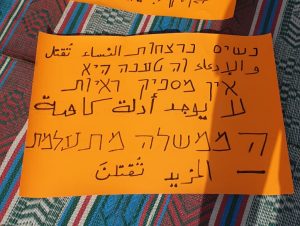 נשים נרצחות النساء تُقتل
والإدعاء וה טענה היא
אין מספיק ראיות
لا يوجد أدلة كافية
הממשלה מתעלמת
– المزيد تُقتلنَ